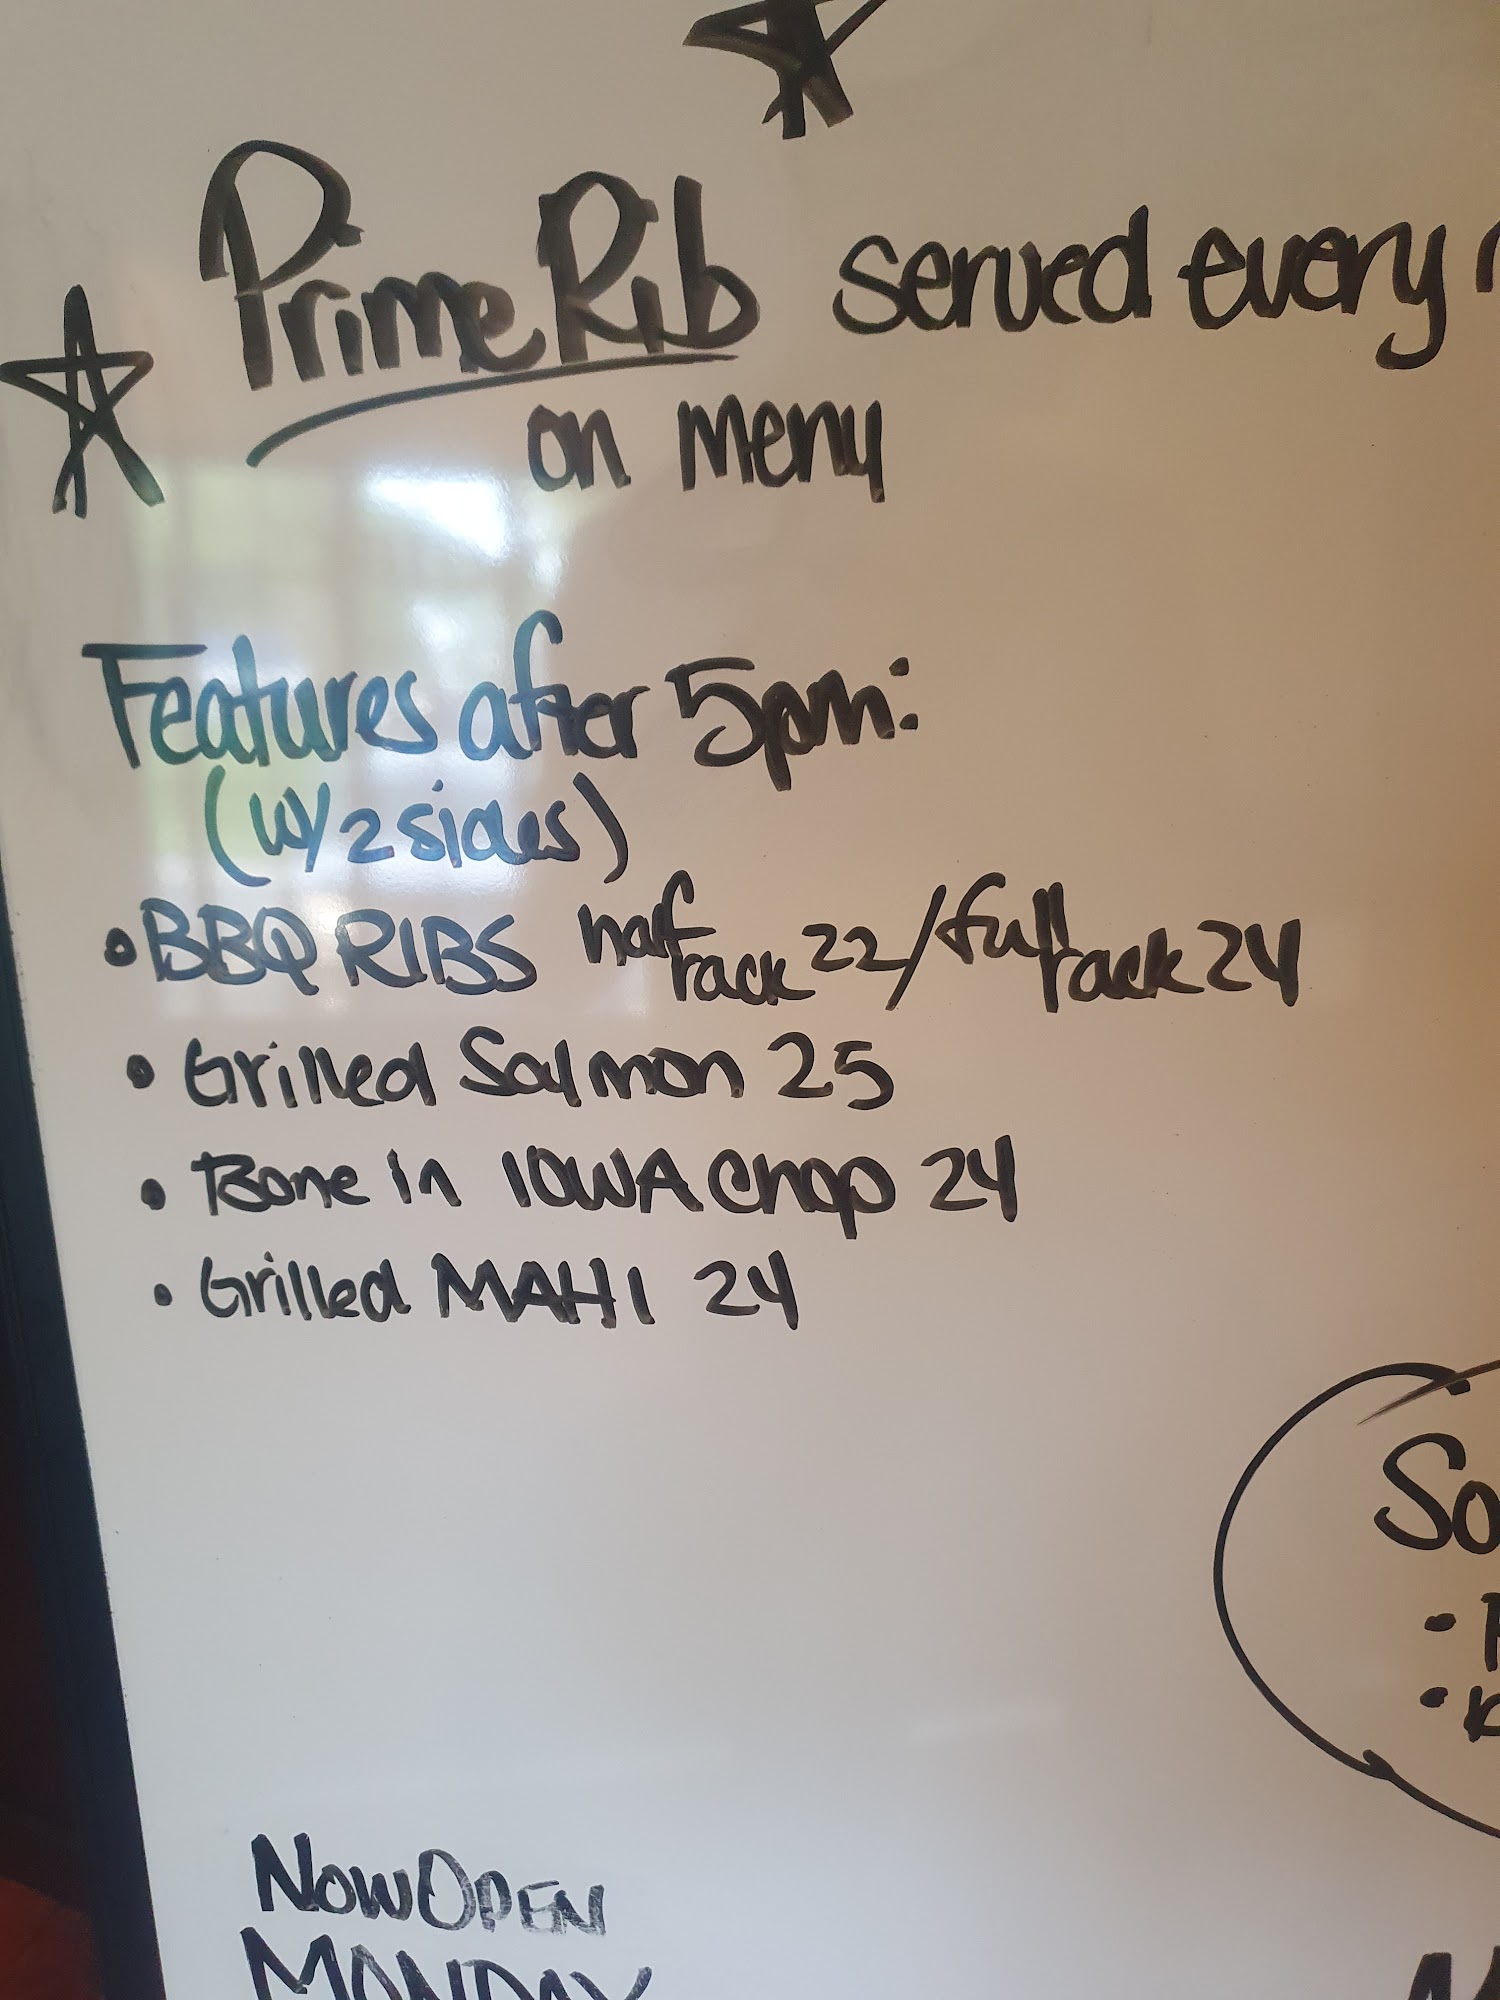 Prime Rib served every
on menu
Features after 5pm:
(w/ 2 sides)
• BBQ RIBS half rack 22/full rack 24
• Grilled Salmon 25
• Bone in IOWA Chop 24
• Grilled MAHI 24
NOW OPEN
MONDAY